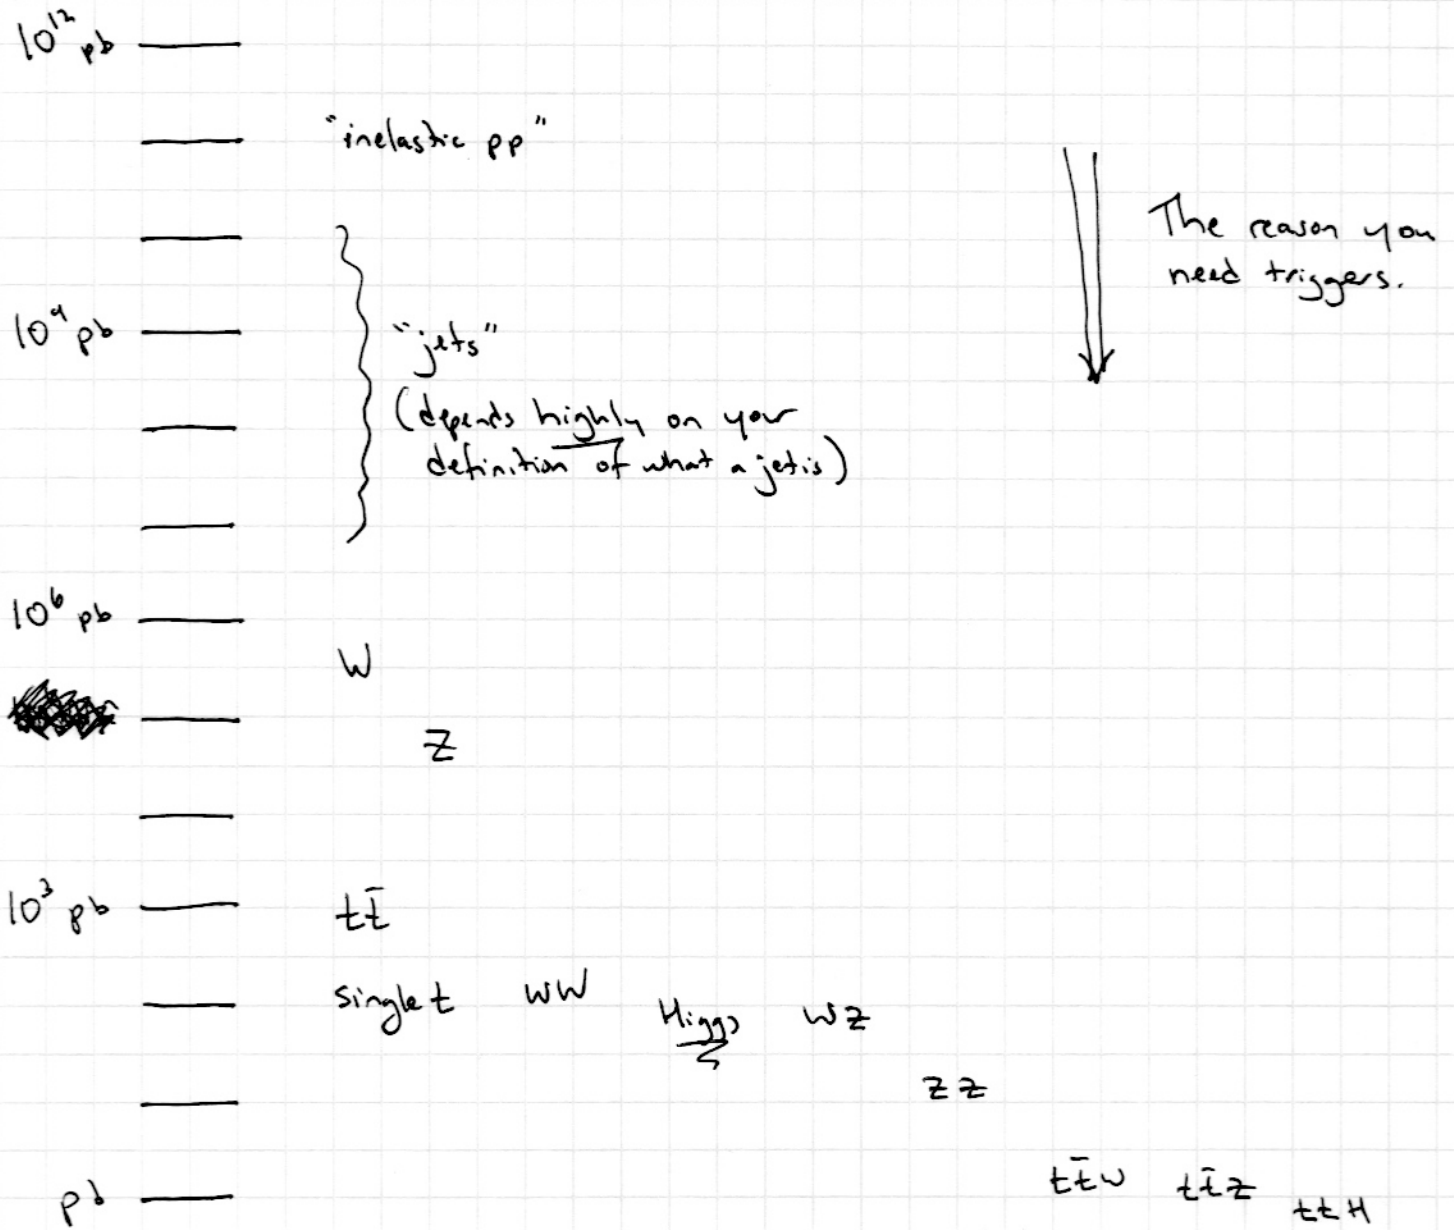 10¹² pb
"inelastic pp"
The reason you
need triggers.
10⁹ pb
"jets"
(depends highly on your
definition of what a jet is)
10⁶ pb
W
Z
10³ pb
tt̄
single t WW Higgs WZ
ZZ
pb
tt̄W tt̄Z ttH